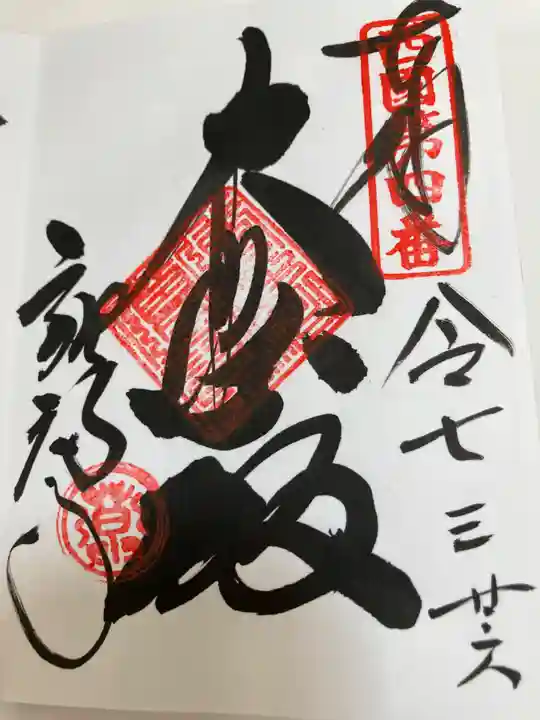 奉拝
西国第四番
令七三廿六
大悲殿
施福寺